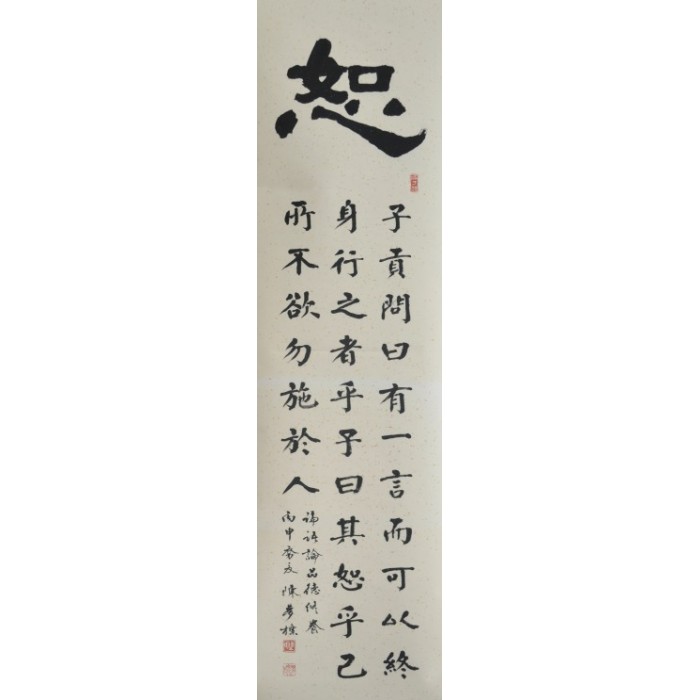 恕
子貢問曰有一言而可以終
身行之者乎子曰其恕乎己
所不欲勿施於人
論語論品德修養
丙申齊友陳夢標